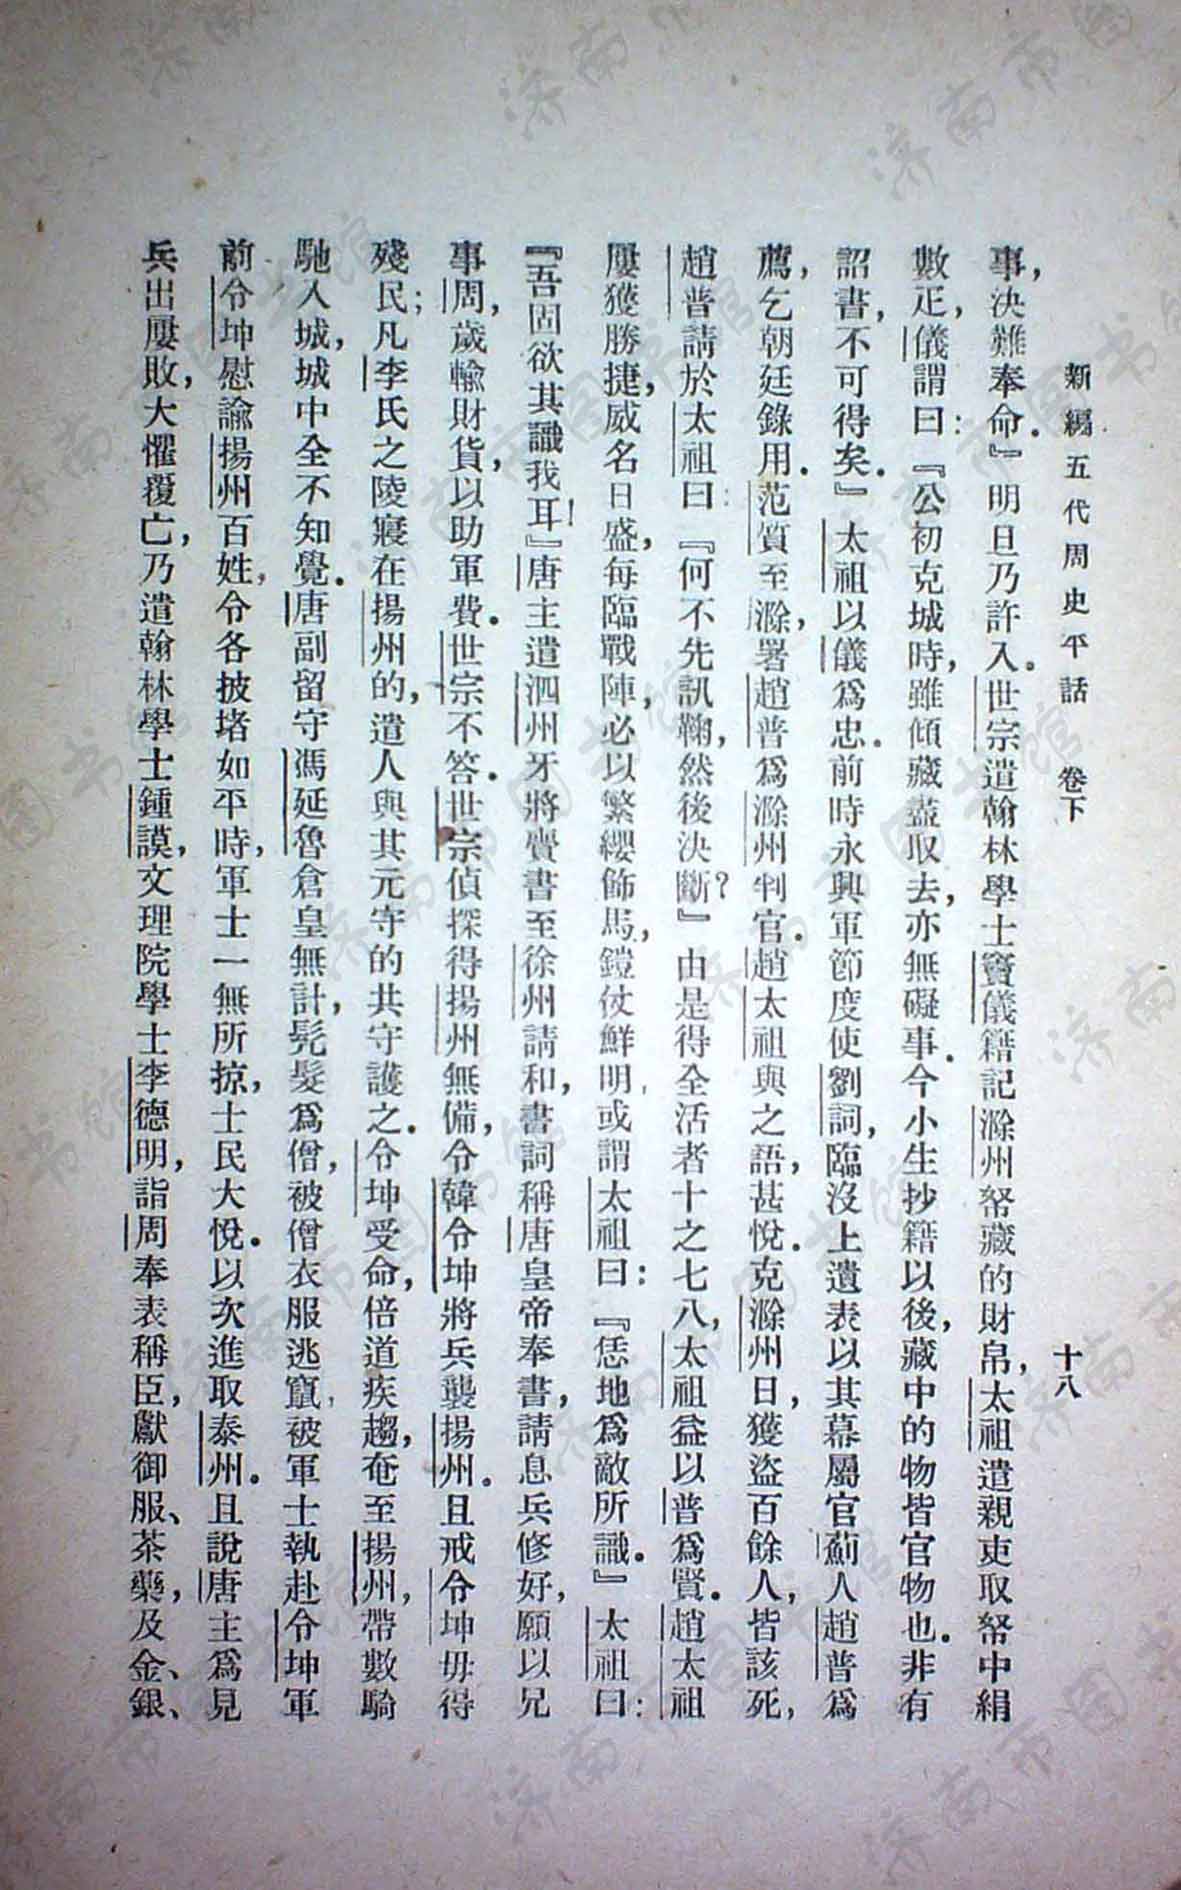 新編五代周史平話　卷下　十八
事，決難奉命。』明旦乃許入。世宗遣翰林學士竇儀籍記滁州帑藏的財帛，太祖遣親吏取帑中絹
數疋，儀謂曰：『公初克城時，雖傾藏盡取去，亦無礙事。今小生抄籍以後，藏中的物皆官物也。非有
詔書，不可得矣。』太祖以儀爲忠。前時永興軍節度使劉詞，臨沒上遺表以其幕屬官薊人趙普爲
薦，乞朝廷錄用。范質至滁，署趙普爲滁州判官。趙太祖與之語，甚悅。克滁州日，獲盜百餘人，皆該死，
趙普請於太祖曰：『何不先訊鞠，然後決斷？』由是得全活者十之七八，太祖益以普爲賢。趙太祖
屢獲勝捷，威名日盛，每臨戰陣，必以繁纓飾馬，鎧仗鮮明，或謂太祖曰：『恁地爲敵所識。』太祖曰：
『吾固欲其識我耳！』唐主遣泗州牙將賫書至徐州請和，書詞稱唐皇帝奉書，請息兵修好，願以兄
事周，歲輸財貨，以助軍費。世宗不答。世宗偵探得揚州無備，令韓令坤將兵襲揚州。且戒令坤毋得
殘民；凡李氏之陵寢在揚州的，遣人與其元守的共守護之。令坤受命，倍道疾趨，奄至揚州，帶數騎
馳入城，城中全不知覺。唐副留守馮延魯倉皇無計，髡髮爲僧，被僧衣服逃竄，被軍士執赴令坤軍
前，令坤慰諭揚州百姓，令各披堵如平時，軍士一無所掠，士民大悅。以次進取泰州。且說唐主爲見
兵出屢敗，大懼覆亡，乃遣翰林學士鍾謨，文理院學士李德明，詣周奉表稱臣，獻御服、茶藥，及金、銀、
濟南市图书馆